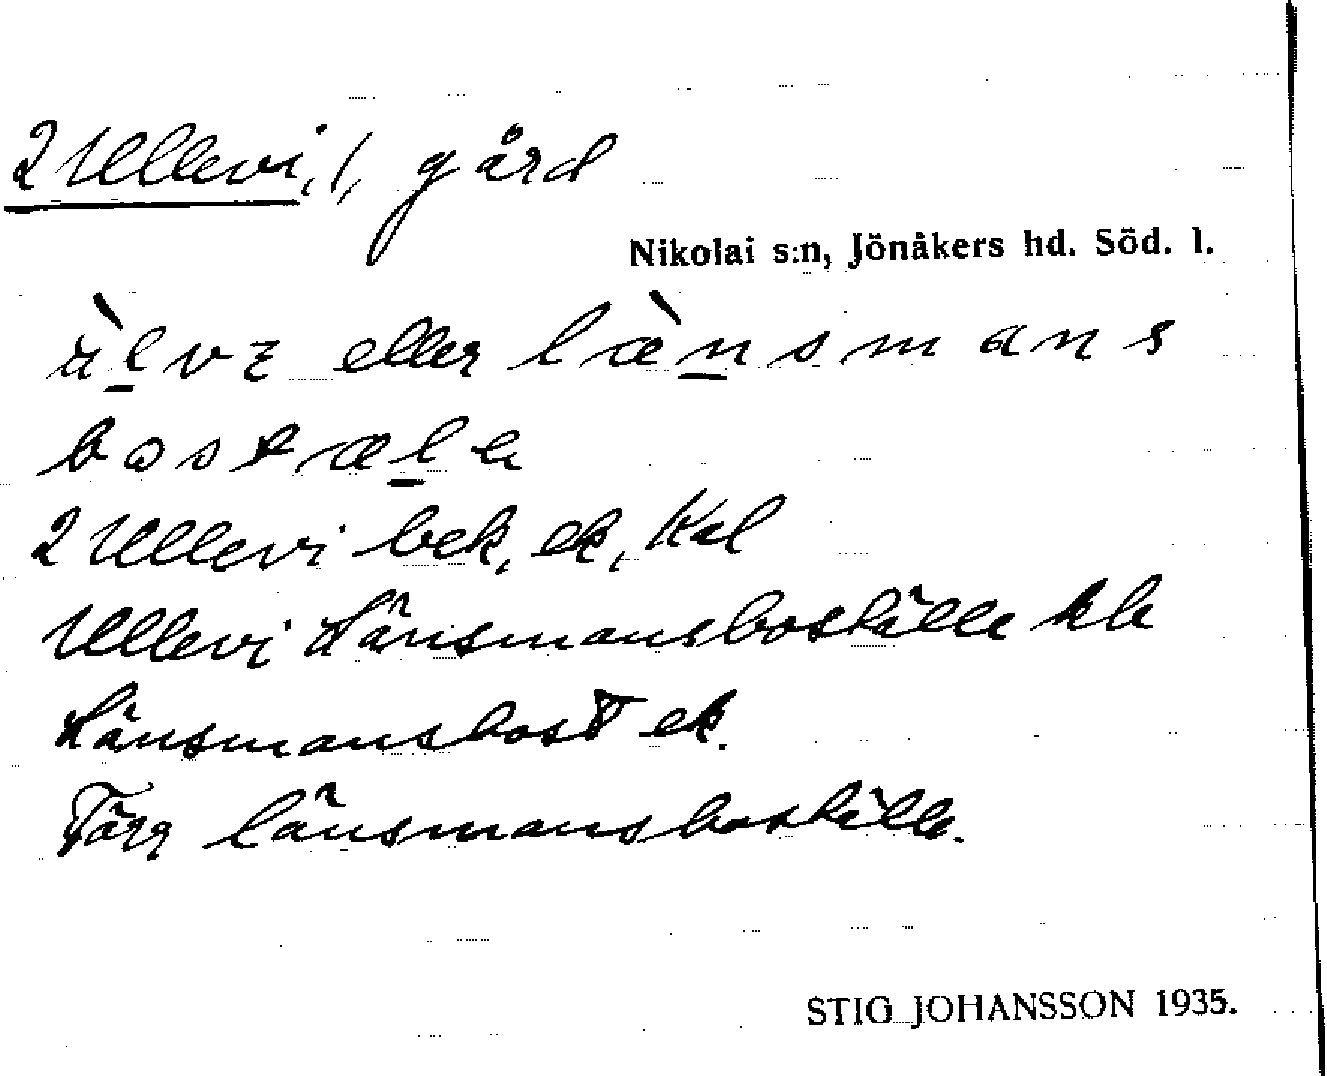 2 Ullevi, 1, gård
Nikolai s:n, Jönåkers hd. Söd. l.
ùlvɩ eller lænsmans
bostælə
2 Ullevi bek, ek, Kal
Ullevi Länsmansboställe
Länsmansbost ek.
Färg länsmansboställe.
STIG JOHANSSON 1935.